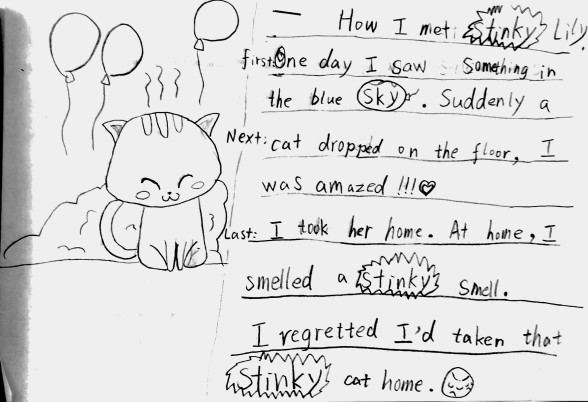 How I met Stinky Lily.
first: One day I saw Something in
the blue sky. Suddenly a
Next: cat dropped on the floor, I
was amazed !!!♡
Last: I took her home. At home, I
smelled a Stinky smell.
I regretted I'd taken that
Stinky cat home.